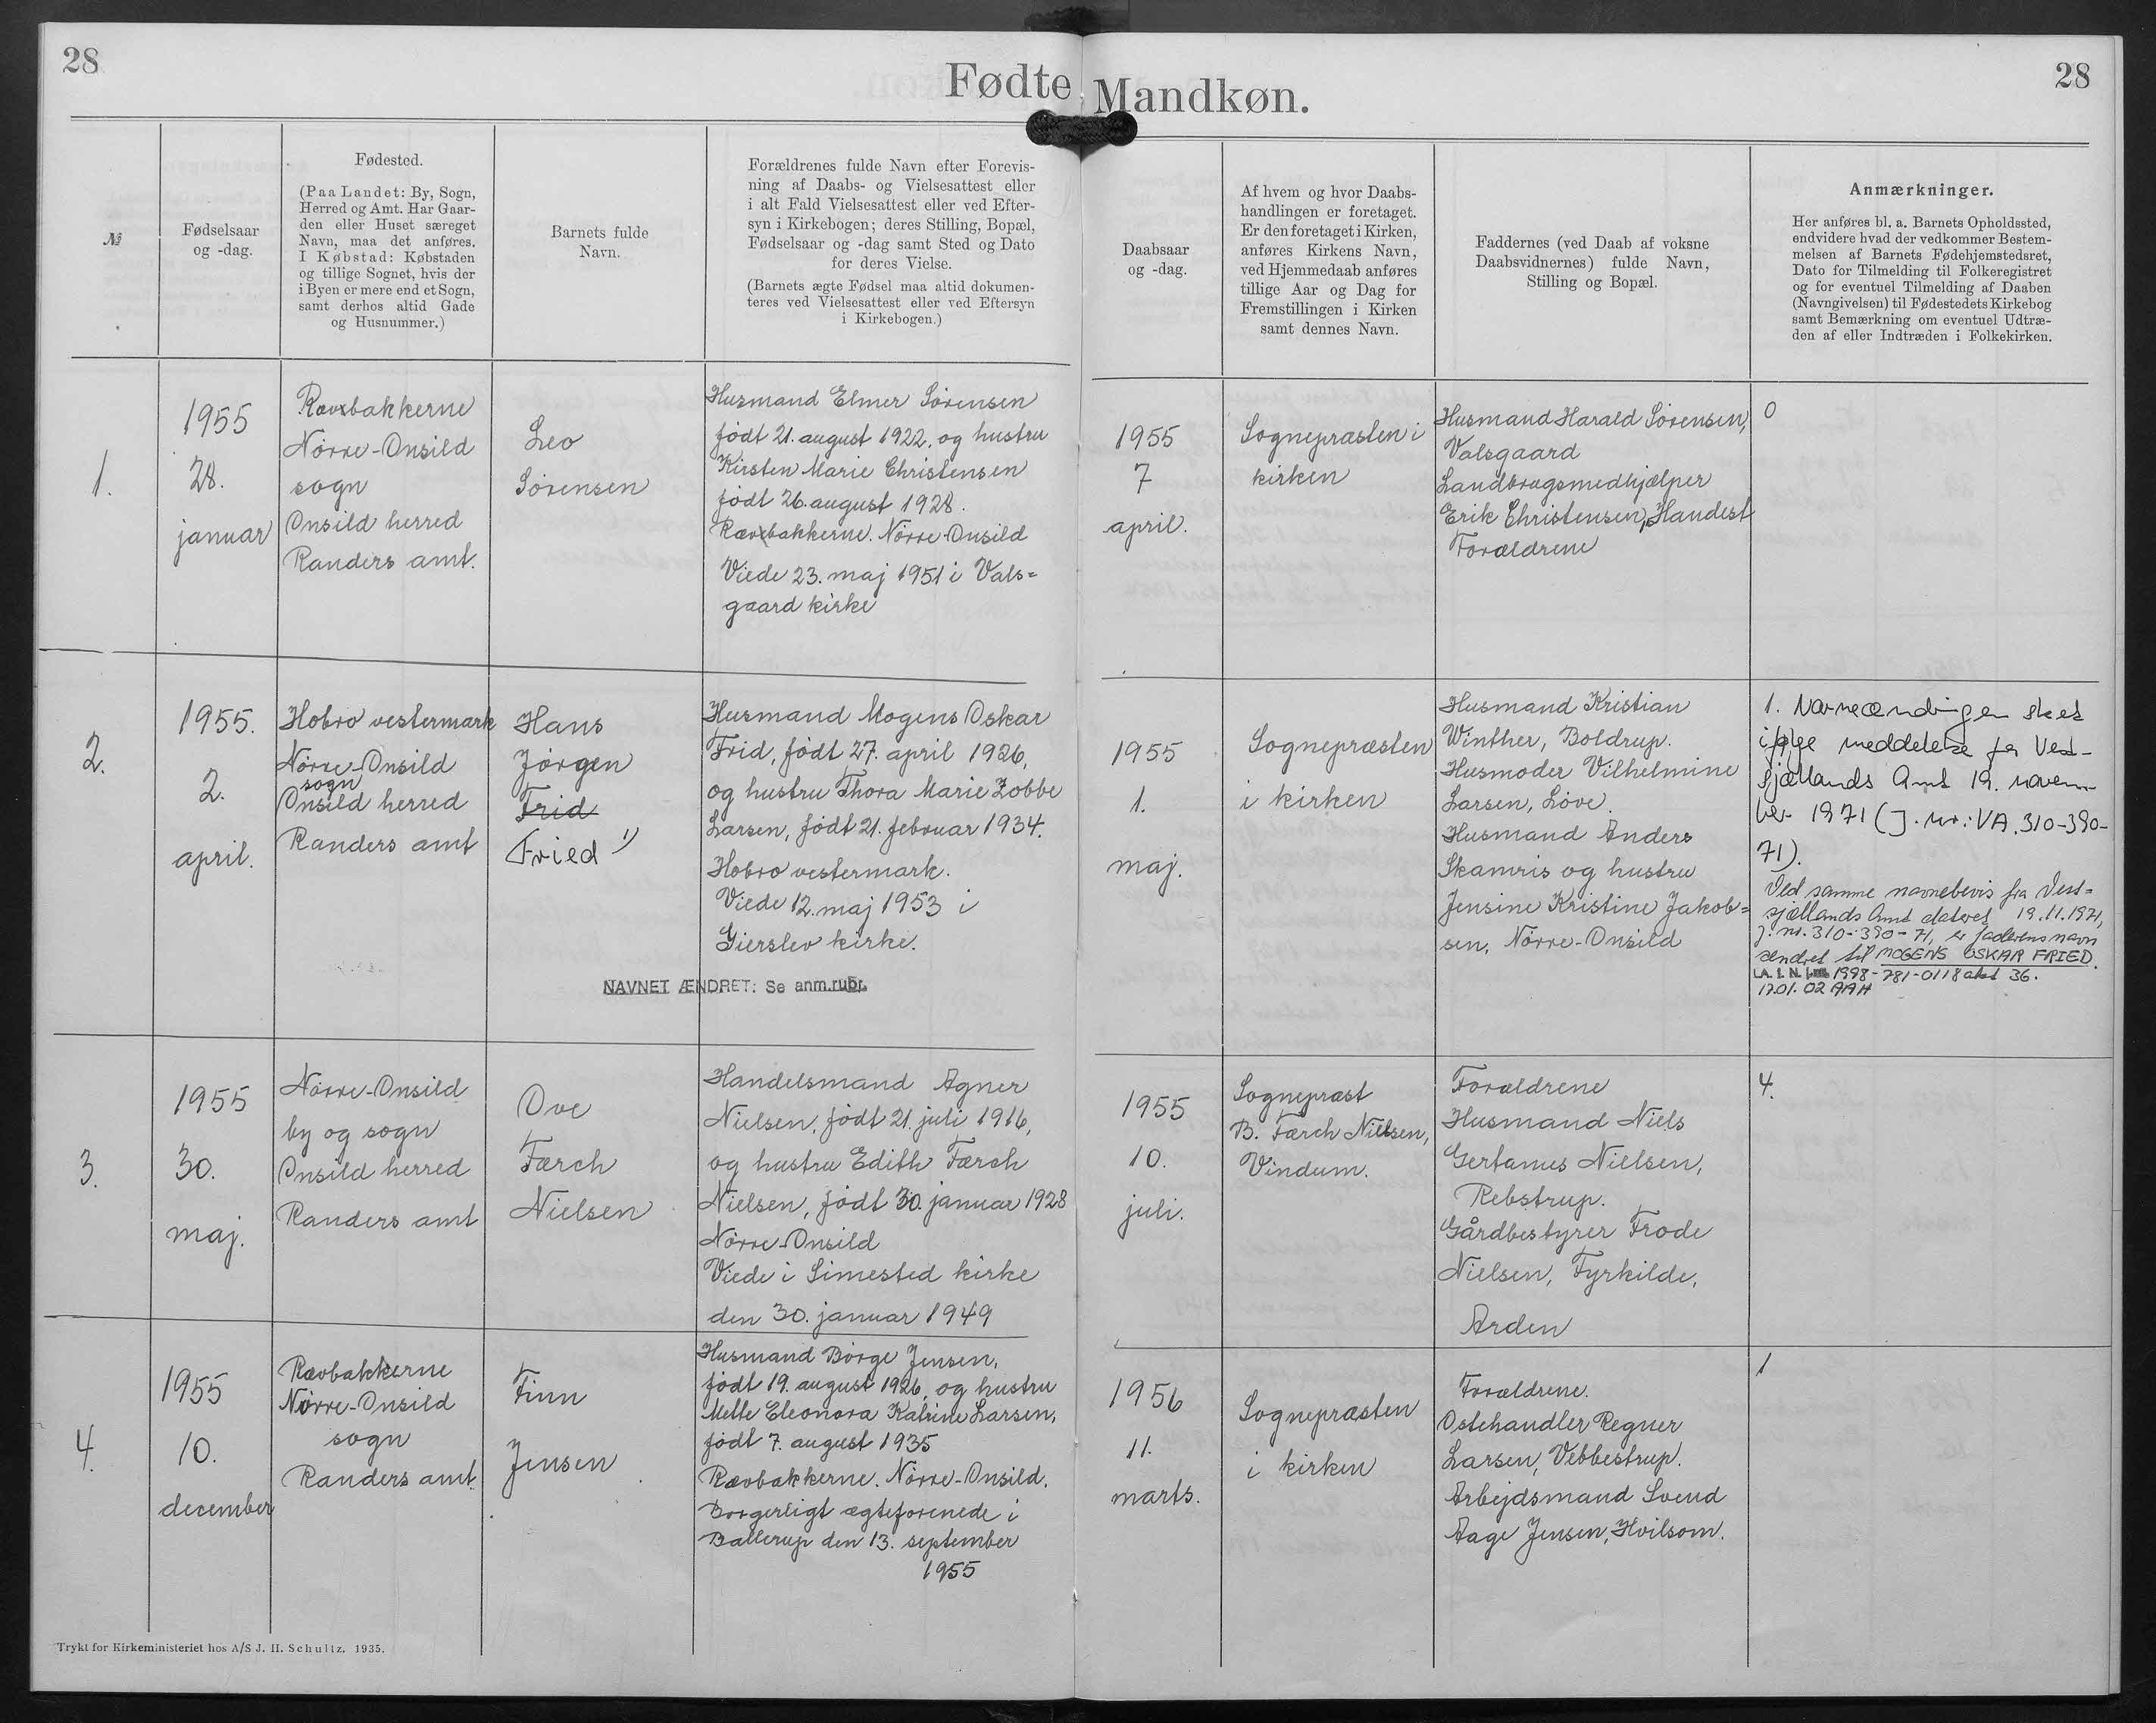 28
28
Fødte Mandkøn.
№
Fødselsaar
og -dag.
Fødested.
(Paa Landet: By, Sogn,
Herred og Amt. Har Gaar-
den eller Huset særeget
Navn, maa det anføres.
I Købstad: Købstaden
og tillige Sognet, hvis der
i Byen er mere end et Sogn,
samt derhos altid Gade
og Husnummer.)
Barnets fulde
Navn.
Forældrenes fulde Navn efter Forevis-
ning af Daabs- og Vielsesattest eller
i alt Fald Vielsesattest eller ved Efter-
syn i Kirkebogen; deres Stilling, Bopæl,
Fødselsaar og -dag samt Sted og Dato
for deres Vielse.
(Barnets ægte Fødsel maa altid dokumen-
teres ved Vielsesattest eller ved Eftersyn
i Kirkebogen.)
Daabsaar
og -dag.
Af hvem og hvor Daabs-
handlingen er foretaget.
Er den foretaget i Kirken,
anføres Kirkens Navn,
ved Hjemmedaab anføres
tillige Aar og Dag for
Fremstillingen i Kirken
samt dennes Navn.
Faddernes (ved Daab af voksne
Daabsvidnernes) fulde Navn,
Stilling og Bopæl.
Anmærkninger.
Her anføres bl. a. Barnets Opholdssted,
endvidere hvad der vedkommer Bestem-
melsen af Barnets Fødehjemstedsret,
Dato for Tilmelding til Folkeregistret
og for eventuel Tilmelding af Daaben
(Navngivelsen) til Fødestedets Kirkebog
samt Bemærkning om eventuel Udtræ-
den af eller Indtræden i Folkekirken.
1.
1955
28.
januar
Rævbakkerne
Nørre-Onsild
sogn
Onsild herred
Randers amt.
Leo
Sørensen
Husmand Elmer Sørensen
født 21. august 1922. og hustru
Kirsten Marie Christensen
født 26. august 1928.
Rævbakkerne. Nørre-Onsild
Viede 23. maj 1951 i Vals=
gaard kirke
1955
7
april.
Sognepræsten i
kirken
Husmand Harald Sørensen,
Valsgaard
Landbrugsmedhjælper
Erik Christensen, Handest
Forældrene
0
2.
1955.
2.
april.
Hobro vestermark
Nørre-Onsild
sogn
Onsild herred
Randers amt
Hans
Jørgen
Frid
Fried 1)
Husmand Mogens Oskar
Frid, født 27. april 1926,
og hustru Thora Marie Zobbe
Larsen, født 21. februar 1934.
Hobro vestermark.
Viede 12. maj 1953 i
Gierslev kirke.
NAVNET ÆNDRET: Se anm.rubr.
1955
1.
maj.
Sognepræsten
i kirken
Husmand Kristian
Winther, Boldrup.
Husmoder Vilhelmine
Larsen, Løve.
Husmand Anders
Skamris og hustru
Jensine Kristine Jakob=
sen, Nørre-Onsild
1. Navneændringen sket
ifølge meddelelse fra Vest-
sjællands Amt 19. novem-
ber 1971 (J. nr.: VA. 310-390-
71).
Ved samme navnebevis fra Vest=
sjællands Amt dateret 19.11.1971,
j. nr. 310-390-71, er faderens navn
ændret til MOGENS OSKAR FRIED.
1998-781-0118 akt 36.
17.01.02 AAH
3.
1955
30.
maj.
Nørre-Onsild
by og sogn
Onsild herred
Randers amt
Ove
Færch
Nielsen
Handelsmand Agner
Nielsen, født 21. juli 1916,
og hustru Edith Færch
Nielsen, født 30. januar 1928
Nørre-Onsild
Viede i Simested kirke
den 30. januar 1949
1955
10.
juli.
Sognepræst
B. Færch Nielsen,
Vindum.
Forældrene
Husmand Niels
Gertanus Nielsen,
Rebstrup.
Gårdbestyrer Frode
Nielsen, Fyrkilde,
Arden
4.
4.
1955
10.
december
Rævbakkerne
Nørre-Onsild
sogn
Randers amt.
Finn
Jensen
Husmand Børge Jensen,
født 19. august 1926, og hustru
Mette Eleonora Katrine Larsen,
født 7. august 1935
Rævbakkerne. Nørre-Onsild.
Borgerligt ægteforenede i
Ballerup den 13. september
1955
1956
11.
marts.
Sognepræsten
i kirken
Forældrene.
Ostehandler Regner
Larsen, Vebbestrup.
Arbejdsmand Svend
Aage Jensen, Hvilsom.
1
Trykt for Kirkeministeriet hos A/S J. H. Schultz. 1935.